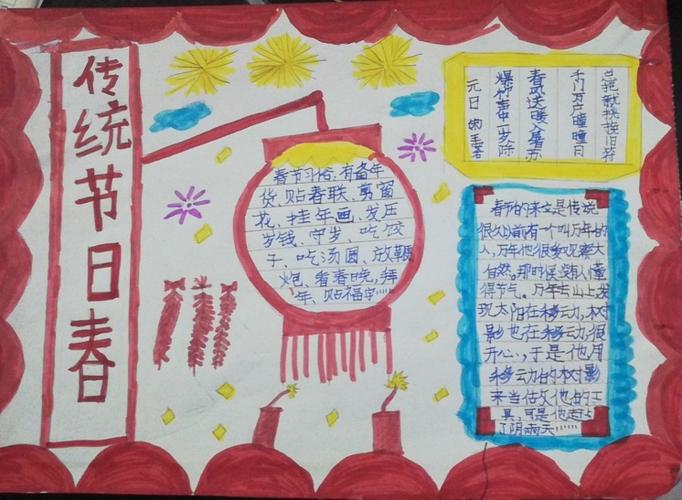 传统节日春
春节习俗,有备年
货、贴春联、剪窗
花、挂年画、发压
岁钱、守岁、吃饺
子、吃汤圆、放鞭
炮、看春晚,拜
年、贴福字……
元日
爆竹声中一岁除
春风送暖入屠苏
千门万户曈曈日
总把新桃换旧符
春节的来是传说
很久以前有一个叫万年的
人,万年他很多观察大
自然。那时候没有人懂
得节气。万年去山上发
现太阳在移动,树
影也在移动,很
开心,于是他用
移动的树影
来当他的工
具,可是他赶上
了阴雨天……